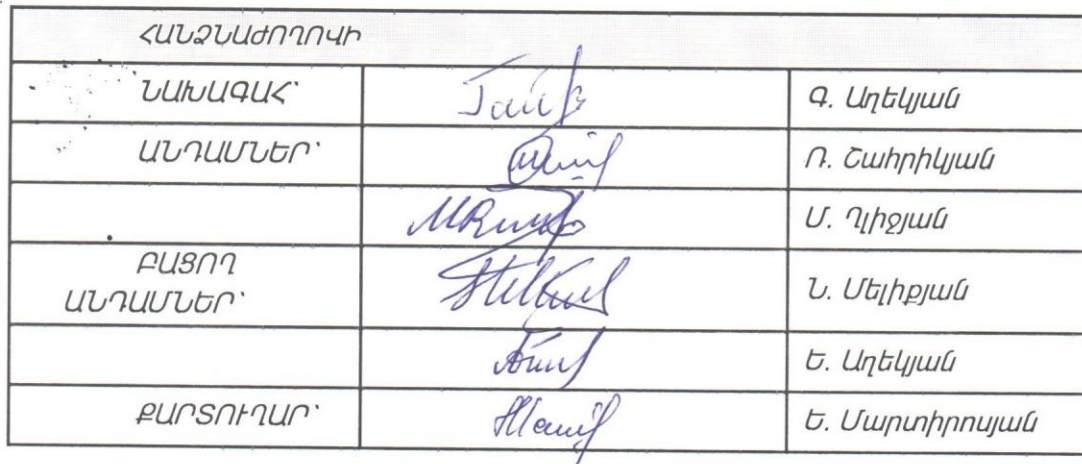 ՀԱՆՁՆԱԺՈՂՈՎԻ
ՆԱԽԱԳԱՀ՝ Գ. Աղեկյան
ԱՆԴԱՄՆԵՐ՝ Ռ. Շահրիկյան
Մ. Ղլիջյան
ԲԱՑՈՂ
ԱՆԴԱՄՆԵՐ՝ Ն. Մելիքյան
Ե. Աղեկյան
ՔԱՐՏՈՒՂԱՐ՝ Ե. Մարտիրոսյան